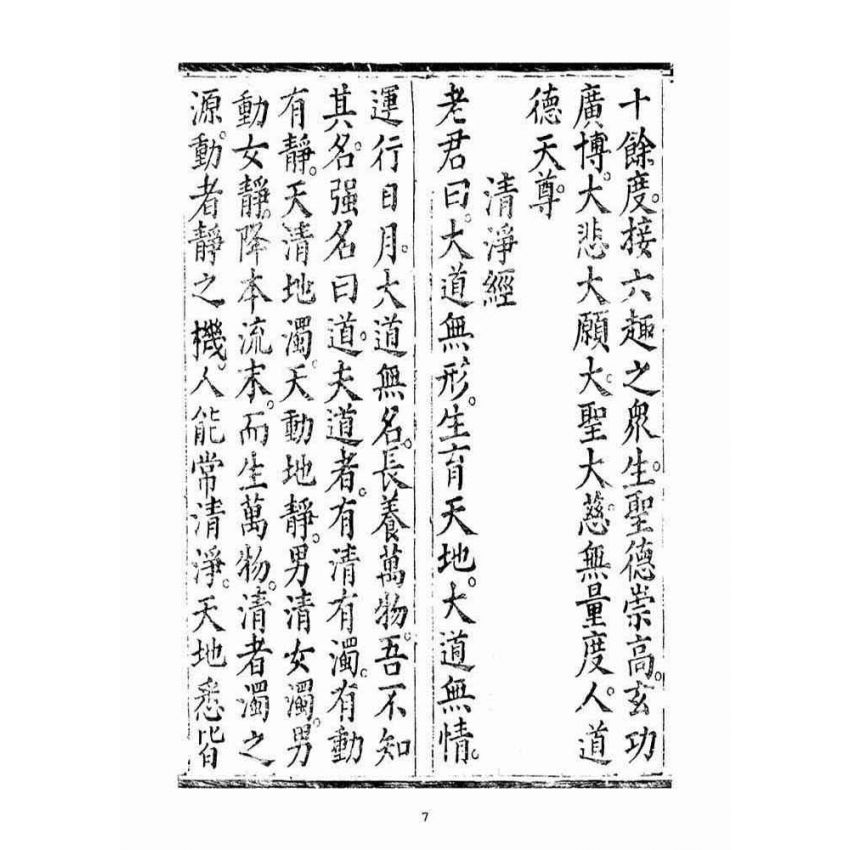 十餘度。接六趣之衆生。聖德崇高。玄功
廣博。大悲大願。大聖大慈。無量度人。道
德天尊。
清淨經
老君曰。大道無形。生育天地。大道無情。
運行日月。大道無名。長養萬物。吾不知
其名。强名曰道。夫道者。有清有濁。有動
有靜。天清地濁。天動地靜。男清女濁。男
動女靜。降本流末。而生萬物。清者濁之
源。動者靜之機。人能常清淨。天地悉皆
7